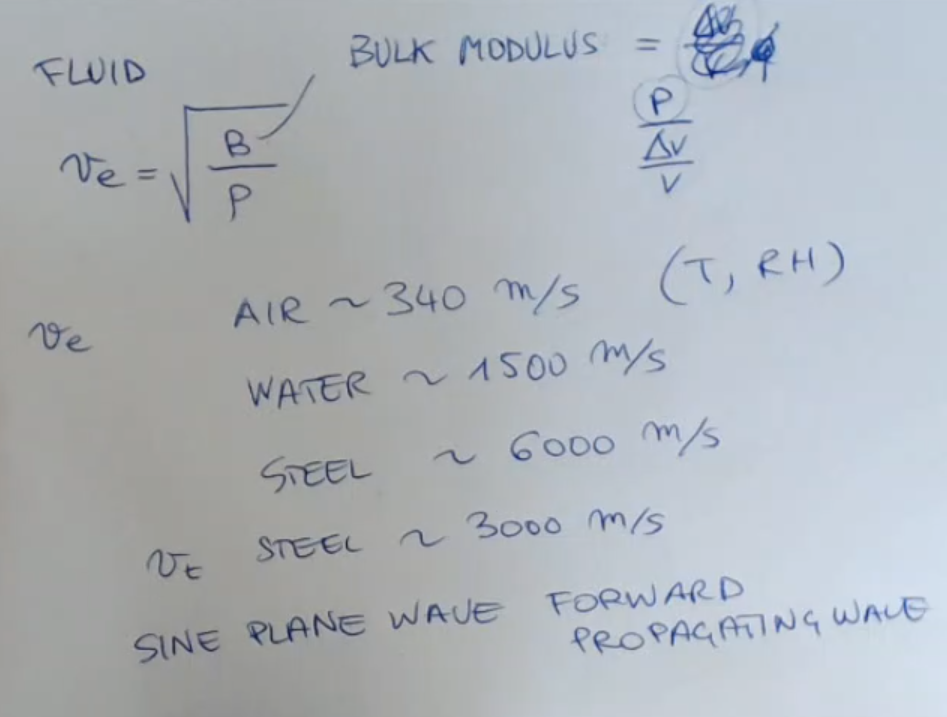 FLUID
BULK MODULUS =
P
ΔV
V
ve = √
B
ρ
ve
AIR ~ 340 m/s (T, RH)
WATER ~ 1500 m/s
STEEL ~ 6000 m/s
vt STEEL ~ 3000 m/s
SINE PLANE WAVE FORWARD
PROPAGATING WAVE